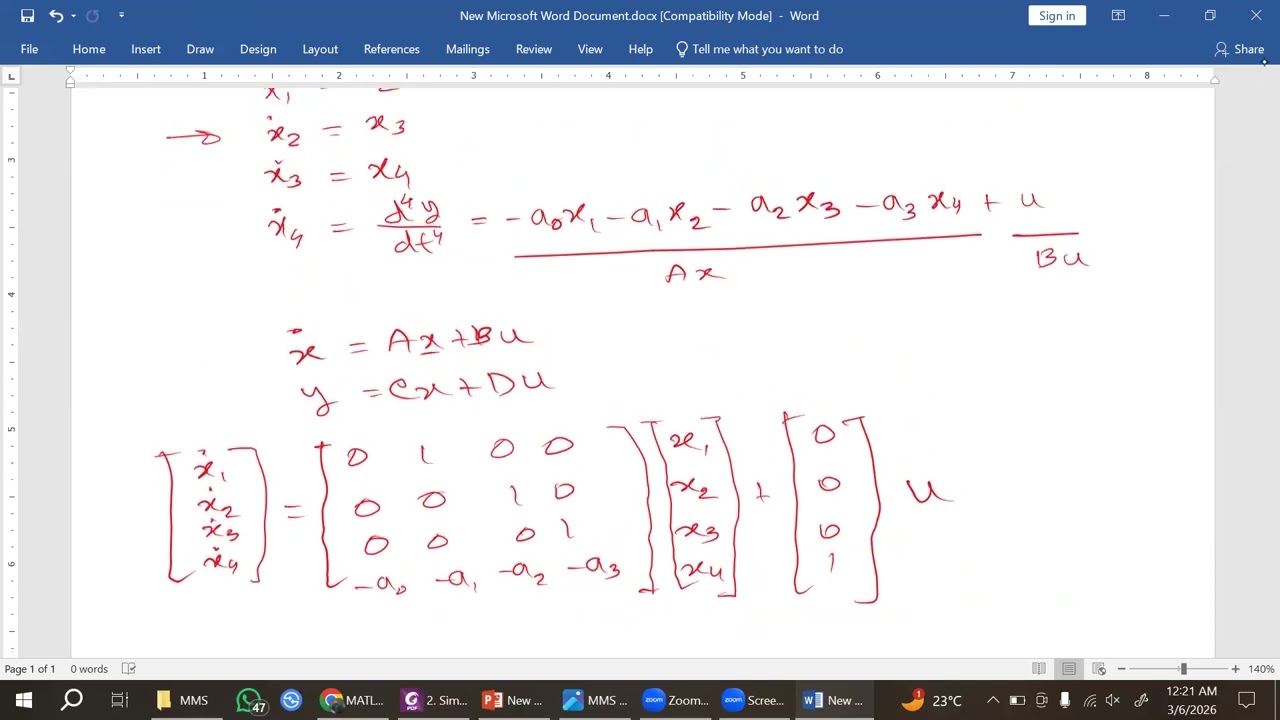 New Microsoft Word Document.docx [Compatibility Mode] - Word
Sign in
File Home Insert Draw Design Layout References Mailings Review View Help Tell me what you want to do Share
1 2 3 4 5 6 7 8
ẋ₁ =
→ ẋ₂ = x₃
ẋ₃ = x₄
ẋ₄ = d⁴y/dt⁴ = -a₀x₁ - a₁x₂ - a₂x₃ - a₃x₄ + u
Ax Bu
ẋ = Ax + Bu
y = Cx + Du
[ẋ₁] = [0 1 0 0] [x₁] + [0] u
[ẋ₂] [0 0 1 0] [x₂] [0]
[ẋ₃] [0 0 0 1] [x₃] [0]
[ẋ₄] [-a₀ -a₁ -a₂ -a₃] [x₄] [1]
3
4
5
6
Page 1 of 1 0 words 140%
MMS 47 MATL... 2. Sim... New ... MMS ... Zoom... Scree... New ... 1 23°C 12:21 AM
3/6/2026